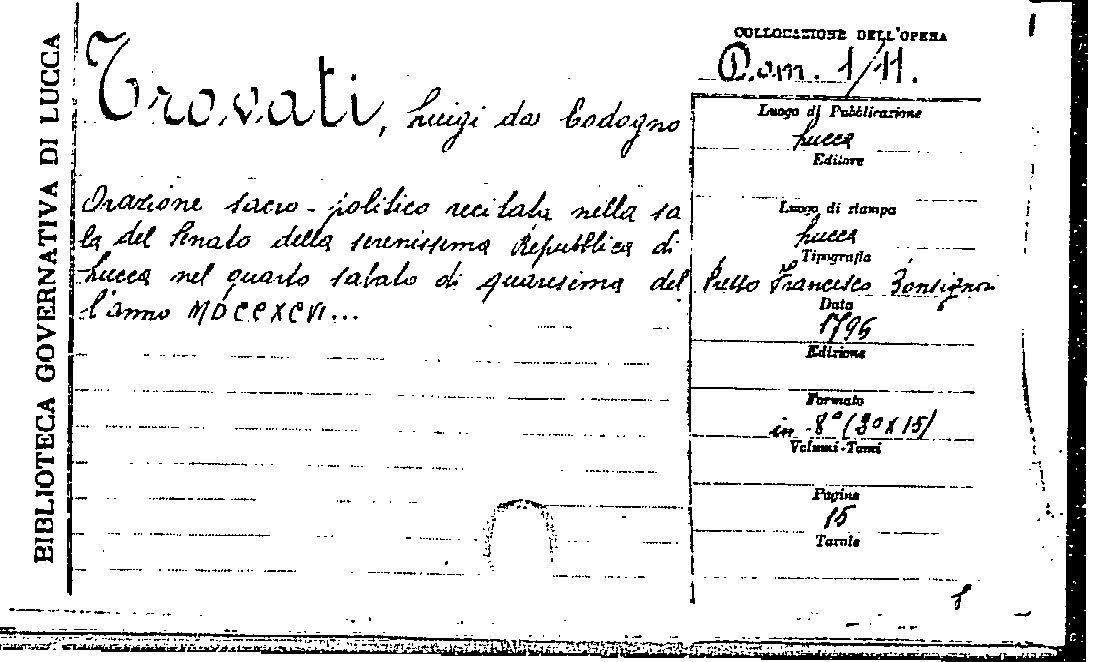 BIBLIOTECA GOVERNATIVA DI LUCCA
Trovati, Luigi da Codogno
Orazione sacro-politico recitata nella sa
la del Senato della serenissima Repubblica di
Lucca nel quarto sabato di quaresima del
l'anno MDCCXCVI...
COLLOCAZIONE DELL'OPERA
Dom. 1/11.
Luogo di Pubblicazione
Lucca
Editore
Luogo di stampa
Lucca
Tipografia
Presso Francesco Bonsignori
Data
1796
Edizione
Formato
in-8° (20x15)
Volumi-Tomi
Pagine
15
Tavole